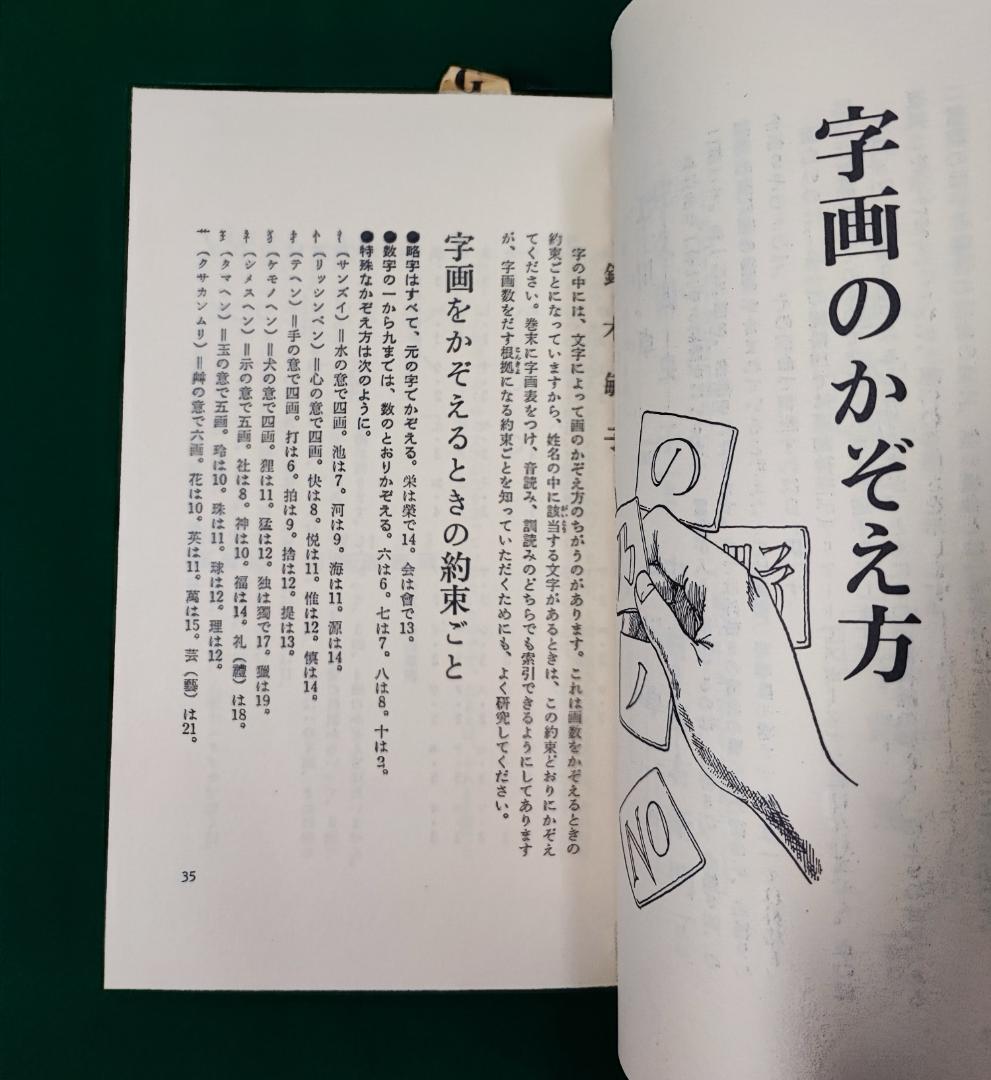 字画のかぞえ方
の
No
字の中には、文字によって画のかぞえ方のちがうのがあります。これは画数をかぞえるときの
約束ごとになっていますから、姓名の中に該当する文字があるときは、この約束どおりにかぞえ
てください。巻末に字画表をつけ、音読み、訓読みのどちらでも索引できるようにしてあります
が、字画数をだす根拠になる約束ごとを知っていただくためにも、よく研究してください。
字画をかぞえるときの約束ごと
●略字はすべて、元の字でかぞえる。栄は榮で14。会は會で13。
●数字の一から九までは、数のとおりかぞえる。六は6。七は7。八は8。十は2。
●特殊なかぞえ方は次のように。
氵(サンズイ)＝水の意で四画。池は7。河は9。海は11。源は14。
忄(リッシンベン)＝心の意で四画。快は8。悦は11。惟は12。慎は14。
扌(テヘン)＝手の意で四画。打は6。拍は9。捨は12。提は13。
犭(ケモノヘン)＝犬の意で四画。狸は11。猛は12。独は獨で17。獵は19。
礻(シメスヘン)＝示の意で五画。社は8。神は10。福は14。礼(禮)は18。
𤣩(タマヘン)＝玉の意で五画。玲は10。珠は11。球は12。理は12。
艹(クサカンムリ)＝艸の意で六画。花は10。英は11。萬は15。芸(藝)は21。
35